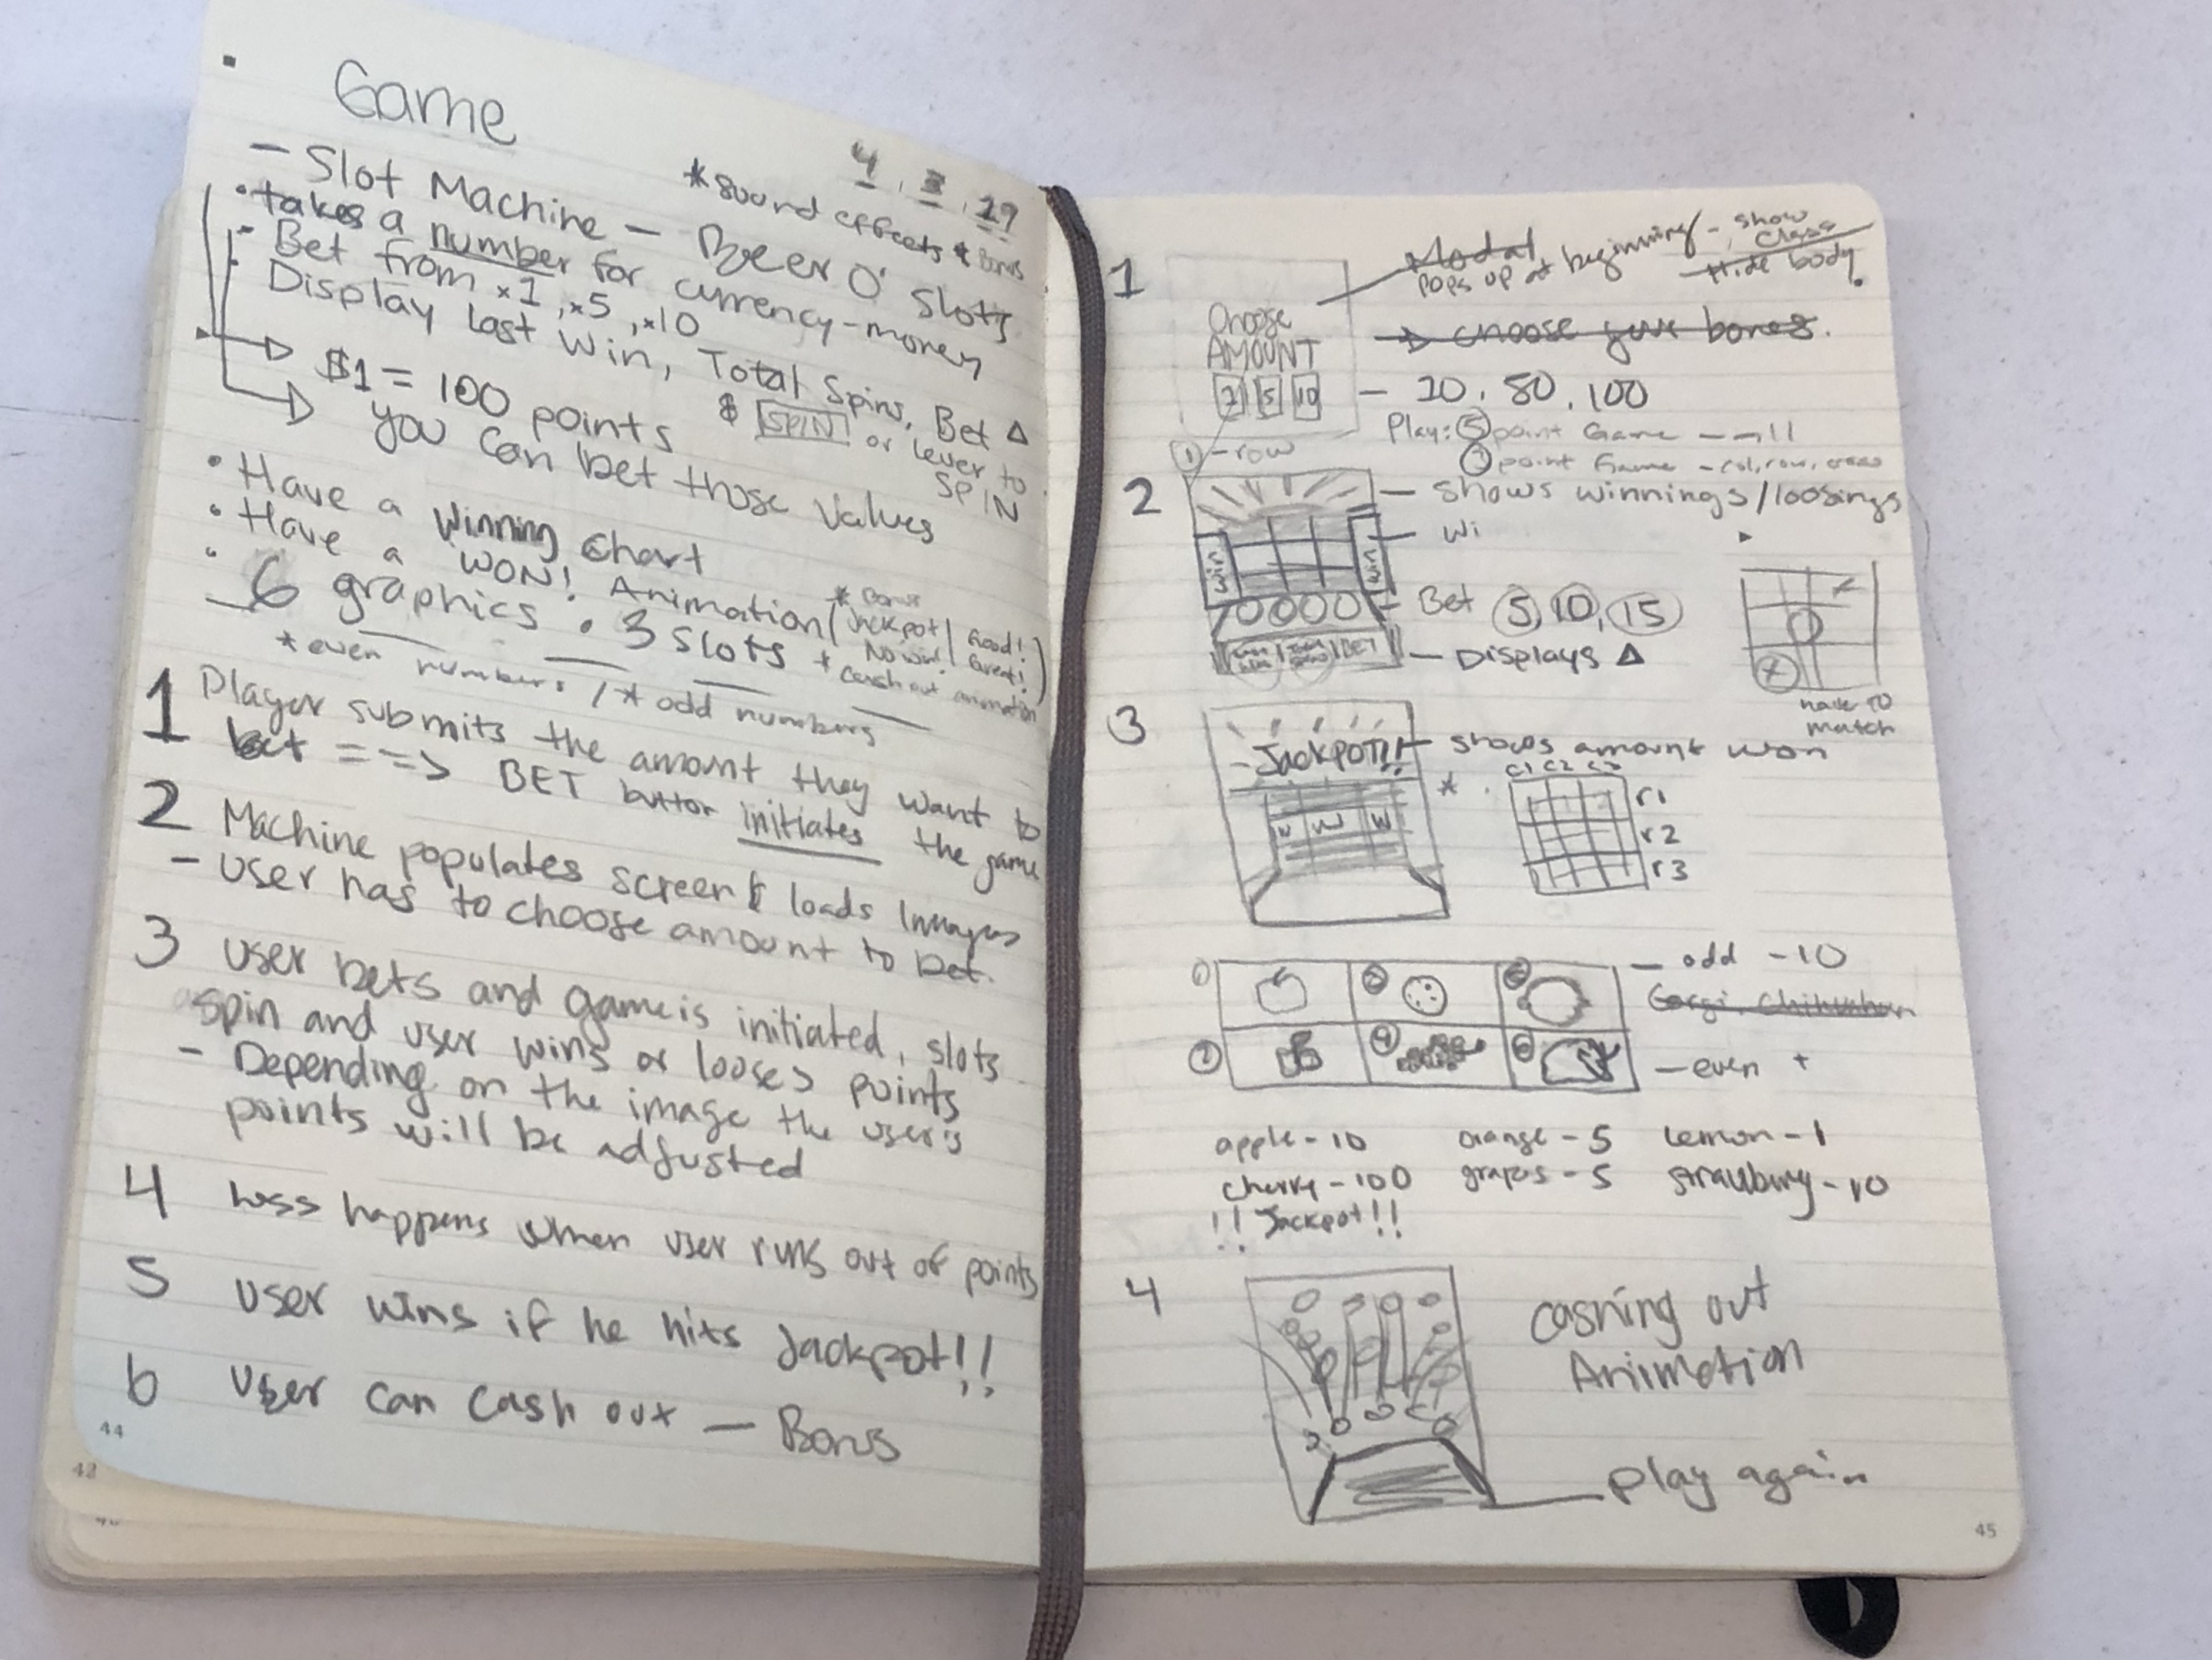 Game
4
* Sound effects * Bonus
- Slot Machine - Beer O' Slots
• takes a number for currency-money
• Bet from x1, x5, x10
• Display last win, Total Spins, Bet Δ
$1 = 100 points
$ SPIN or lever to SPIN
You can bet those values
• Have a Winning Chart
• Have a WON! Animation (Jackpot / Good!
* Bonus
No win / Great!)
• 6 graphics • 3 Slots
+ Cash out animation
* even numbers / * odd numbers
1 Player submits the amount they want to
bet ==> BET button initiates the game
2 Machine populates screen & loads Images
- User has to choose amount to bet.
3 User bets and game is initiated, slots
spin and user wins or looses points
- Depending on the image the user's
points will be adjusted
4 Loss happens when user runs out of points
5 User wins if he hits Jackpot!!
6 User can cash out - Bonus
44
42
1
Modal
Pops up at beginning - show class
Hide body.
Choose
AMOUNT
5 10
→ choose your bones.
- 20, 50, 100
Play: 5 point Game - all
point Game - col, row,
1 - row
2
- Shows winnings/loosings
win
win
- Wi
- Bet 5, 10, 15
BET
- Displays Δ
x
x
have to
match
3
- Jackpot!! - shows amount won
W W W
* .
C1 C2 C3
r1
r2
r3
- odd - 10
- even +
apple - 10 orange - 5 Lemon - 1
cherry - 100 grapes - 5 strawburry - 10
!! Jackpot!!
4
Cashing out
Animation
play again
45